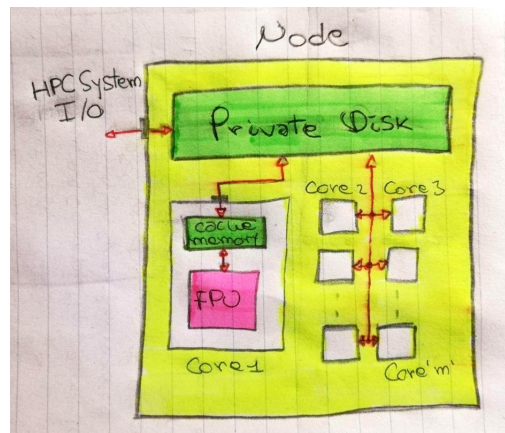 Node
HPC System
I/O
Private Disk
Core 2 Core 3
cache
memory
FPU
Core 1
Core 'm'